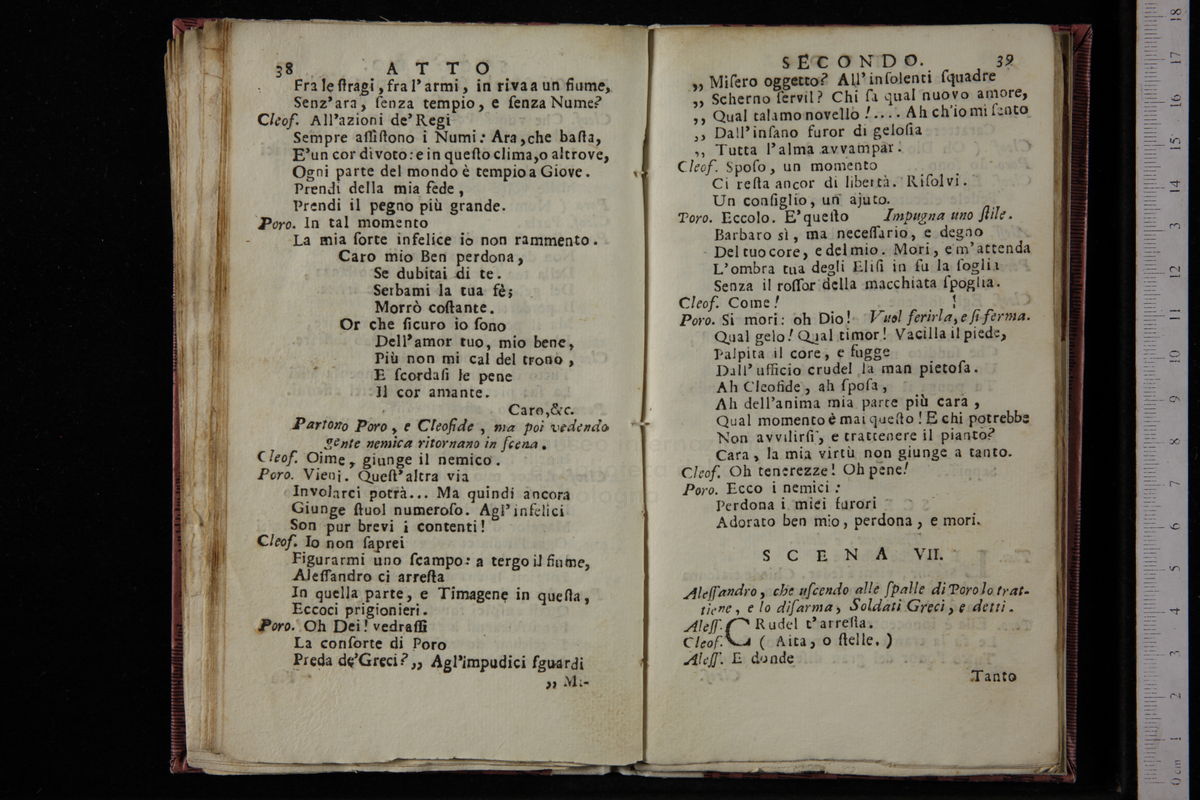 38 ATTO
Fra le ſtragi, fra l'armi, in riva a un fiume,
Senz'ara, ſenza tempio, e ſenza Nume?
Cleof. All'azioni de' Regi
Sempre aſſiſtono i Numi: Ara, che baſta,
E' un cor divoto: e in queſto clima, o altrove,
Ogni parte del mondo è tempio a Giove.
Prendi della mia fede,
Prendi il pegno più grande.
Poro. In tal momento
La mia ſorte infelice io non rammento.
Caro mio Ben perdona,
Se dubitai di te.
Serbami la tua fè;
Morrò coſtante.
Or che ſicuro io ſono
Dell'amor tuo, mio bene,
Più non mi cal del trono,
E ſcordaſi le pene
Il cor amante.
Caro, &c.
Partono Poro, e Cleofide, ma poi vedendo
gente nemica ritornano in ſcena.
Cleof. Oime, giunge il nemico.
Poro. Vieni. Queſt'altra via
Involarci potrà... Ma quindi ancora
Giunge ſtuol numeroſo. Agl'infelici
Son pur brevi i contenti!
Cleof. Io non ſaprei
Figurarmi uno ſcampo: a tergo il fiume,
Aleſſandro ci arreſta
In quella parte, e Timagene in queſta,
Eccoci prigionieri.
Poro. Oh Dei! vedraſſi
La conſorte di Poro
Preda de' Greci? „ Agl'impudici ſguardi
„ Mi-
SECONDO. 39
„ Miſero oggetto? All'inſolenti ſquadre
„ Scherno ſervil? Chi ſa qual nuovo amore,
„ Qual talamo novello!.... Ah ch'io mi ſento
„ Dall'inſano furor di geloſia
„ Tutta l'alma avvampar.
Cleof. Spoſo, un momento
Ci reſta ancor di libertà. Riſolvi.
Un conſiglio, un ajuto.
Poro. Eccolo. E' queſto Impugna uno ſtile.
Barbaro sì, ma neceſſario, e degno
Del tuo core, e del mio. Mori, e m'attenda
L'ombra tua degli Eliſi in ſu la ſoglia
Senza il roſſor della macchiata ſpoglia.
Cleof. Come!
Poro. Si mori: oh Dio! Vuol ferirla, e ſi ferma.
Qual gelo! Qual timor! Vacilla il piede,
Palpita il core, e fugge
Dall'ufficio crudel la man pietoſa.
Ah Cleofide, ah ſpoſa,
Ah dell'anima mia parte più cara,
Qual momento è mai queſto! E chi potrebbe
Non avvilirſi, e trattenere il pianto?
Cara, la mia virtù non giunge a tanto.
Cleof. Oh tenerezze! Oh pene!
Poro. Ecco i nemici:
Perdona i miei furori
Adorato ben mio, perdona, e mori.
SCENA VII.
Aleſſandro, che uſcendo alle ſpalle di Poro lo trat-
tiene, e lo diſarma, Soldati Greci, e detti.
Aleſſ. CRudel t'arreſta.
Cleof. (Aita, o ſtelle.)
Aleſſ. E donde
Tanto